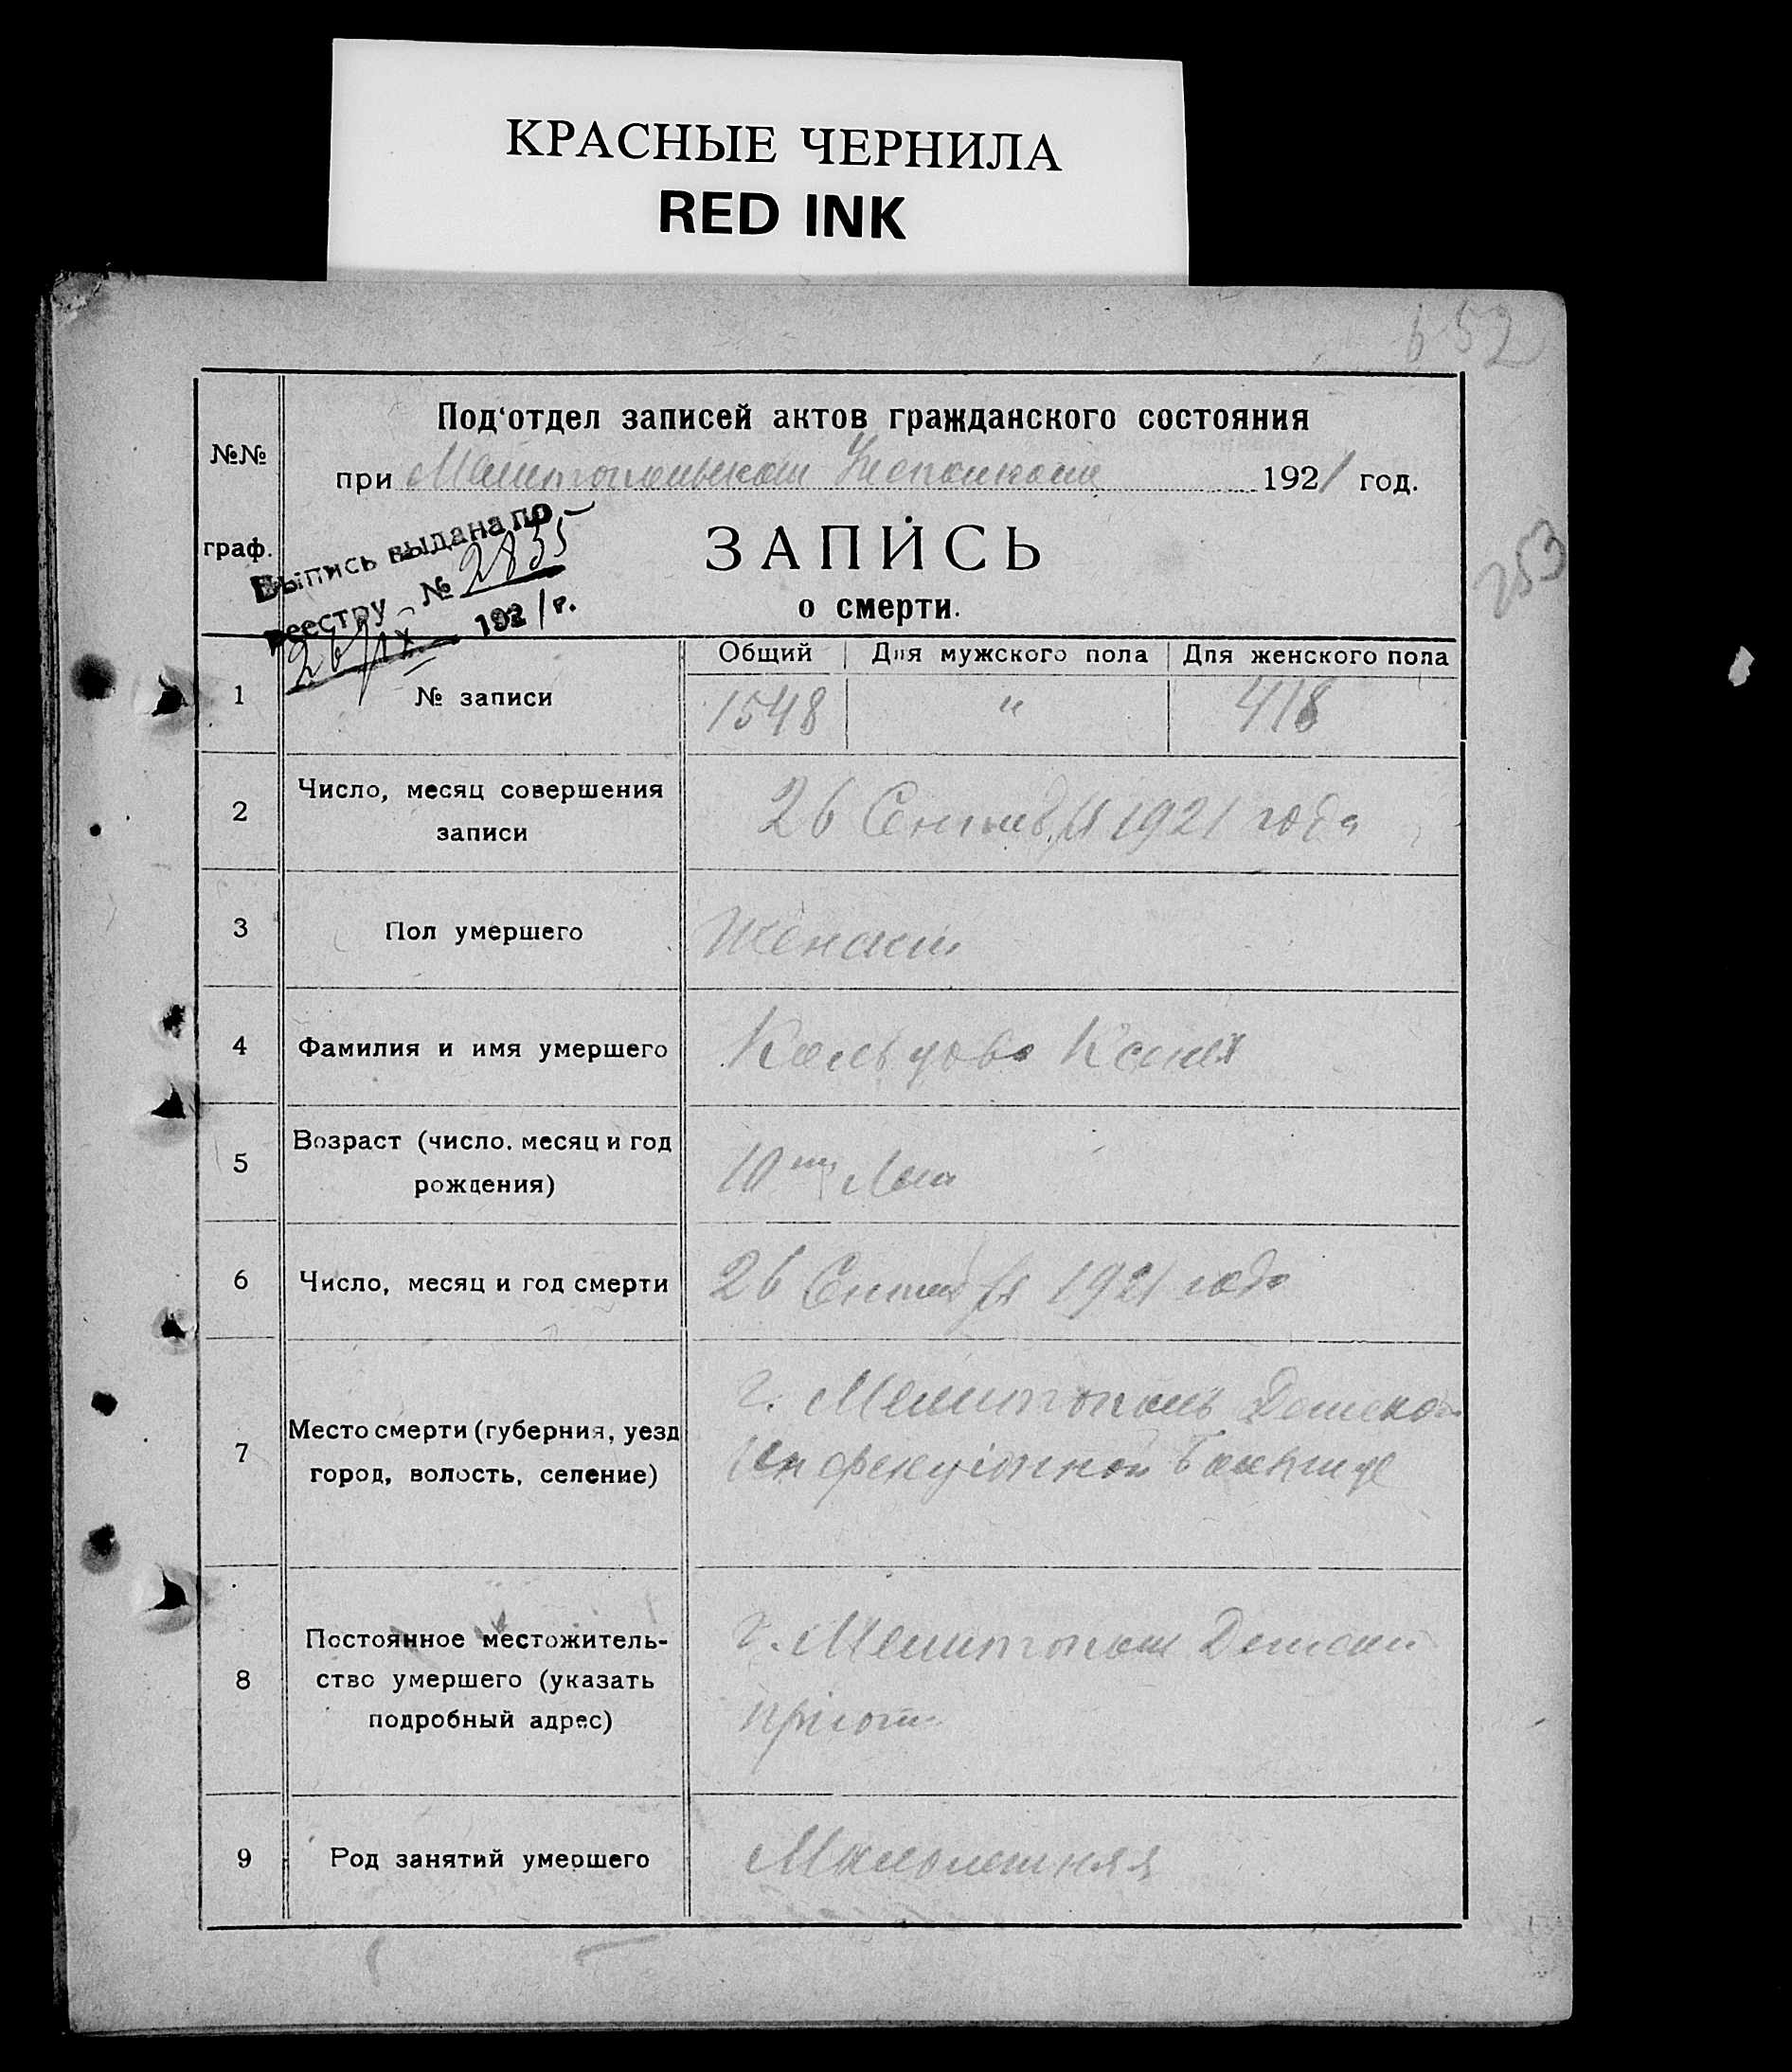 КРАСНЫЕ ЧЕРНИЛА
RED INK
652
№№
граф.
Под‘отдел записей актов гражданского состояния
при Мелитопольском Исполкоме 1921 год.
253
Выпись выдана по
реестру № 2835
26/IX 1921 г.
ЗАПИСЬ
о смерти.
Общий Для мужского пола Для женского пола
1 № записи 1548 " 418
2 Число, месяц совершения
записи
26 Сентября 1921 года
3 Пол умершего Женский
4 Фамилия и имя умершего Кольцова Ксения
5 Возраст (число, месяц и год
рождения)
10ти Лет
6 Число, месяц и год смерти 26 Сентября 1921 года
7 Место смерти (губерния, уезд
город, волость, селение)
г. Мелитополь Детской
Инфекціонной Больнице
8 Постоянное местожитель-
ство умершего (указать
подробный адрес)
г. Мелитополь Детский
пріют
9 Род занятий умершего Малолетняя